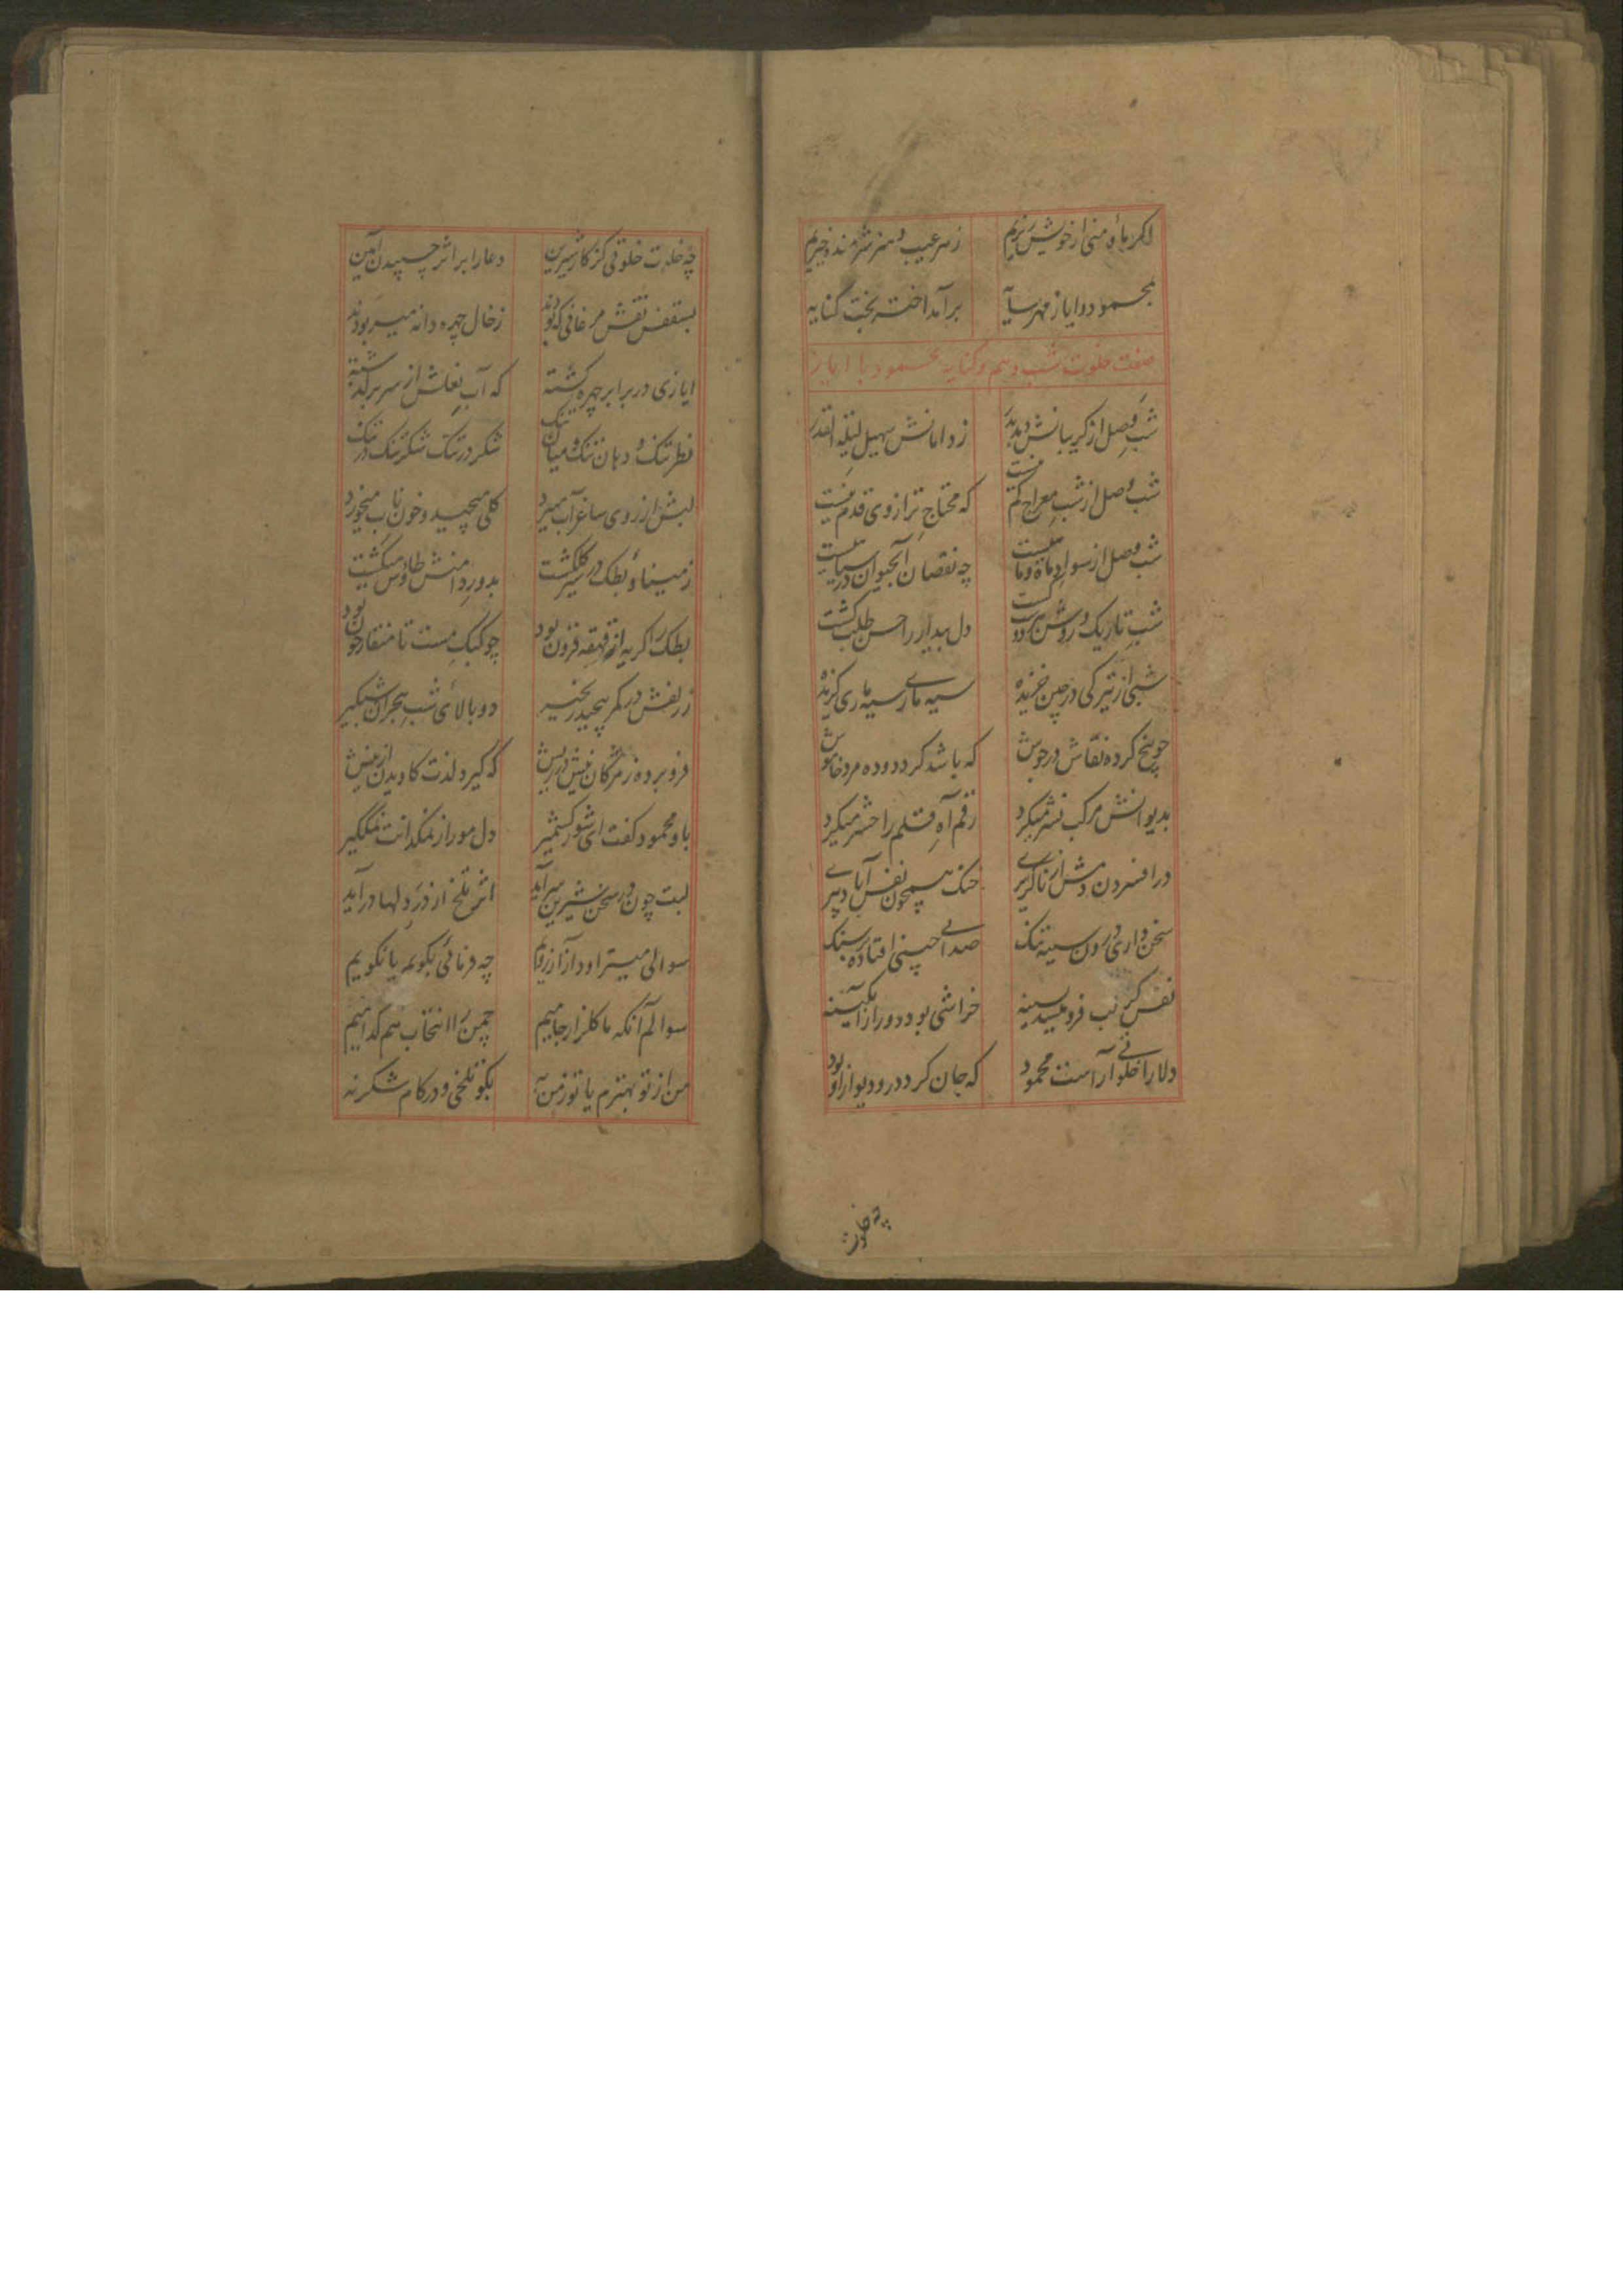 اکر ماه منی از خویش نریم زسر عیب و هنر شرمنده خیریم
بمحمود و ایاز مهر سایه برآمد اختر بخت کنایه
صفت خلوت شب دهم و کنایه محمود با ایاز
شب وصل از کریبانش دمد بدر زدامانش سهیل لیلة القدر
شب وصل از شب معراج کم نیست که محتاج ترازوی قدم نیست
شب وصل از سواد ماه و ما نیست چه نقصان آبحیوان در سیاهیست
شب تاریک روشن دل بیدار را حسن طلب کشت
شبی از تیرکی در چین خزیده سیه ماری سیه ماری کزیده
چو یخ کرده نقاش در جوش که باشد کرد دوده مرد خاموش
بدیوانش مرکب نشر میکرد رقم آه قلم را حشر میکرد
در افسردن دمش از ناکزیری خنک همچون نفس آباد پیری
سخن داری درون سینه تنک صدای چینی افتاده بر سنک
نفس کز لب فرو میشد بسینه خراشی بود دور از آبکینه
دلارا خلوتی آراست محمود که جان کرد در و دیوار او بود
چه خلوت
چه خلوت خلوتی کز کار شیرین دعا را بر اثر چسپیدن آمین
بسقفش نقش مرغانی که بودند زخال چهره دانه میربودند
ایازی در برابر چهره کشته که آب نعلش از سر برکذشته
نظر تنک و دهان تنک و میان تنک شکر در تنک شکر تنک در تنک
لبش از روی ساغر آب میبرد کلی میچید و خون ناب میخورد
زمینا و بطک در سیر کلکشت بدور دامنش طاوس میکشت
بطک را کریه از قهقهه فزون بود چو کبک مست تا منقار خون بود
ز زلفش در کمر پیچید زنجیر دو بالای شب هجران شبکیر
فرو برده ز مژکان نیش در ریش که کیرد لذت کاویدن از نیش
باو محمود کفت ای شور کشمیر دل مور از نمکدانت نمککیر
لبت چون در سخن شیرین سرآید اثر تلخ از در دلها درآید
سوالی میتراود از آرزویم چه فرمائی بکویم یا نکویم
سوالم آنکه ما کلزار جامیم چمن را انتخاب هم کدامیم
من از تو بهترم یا تو ز من به بکو تلخی و در کام شکر نه